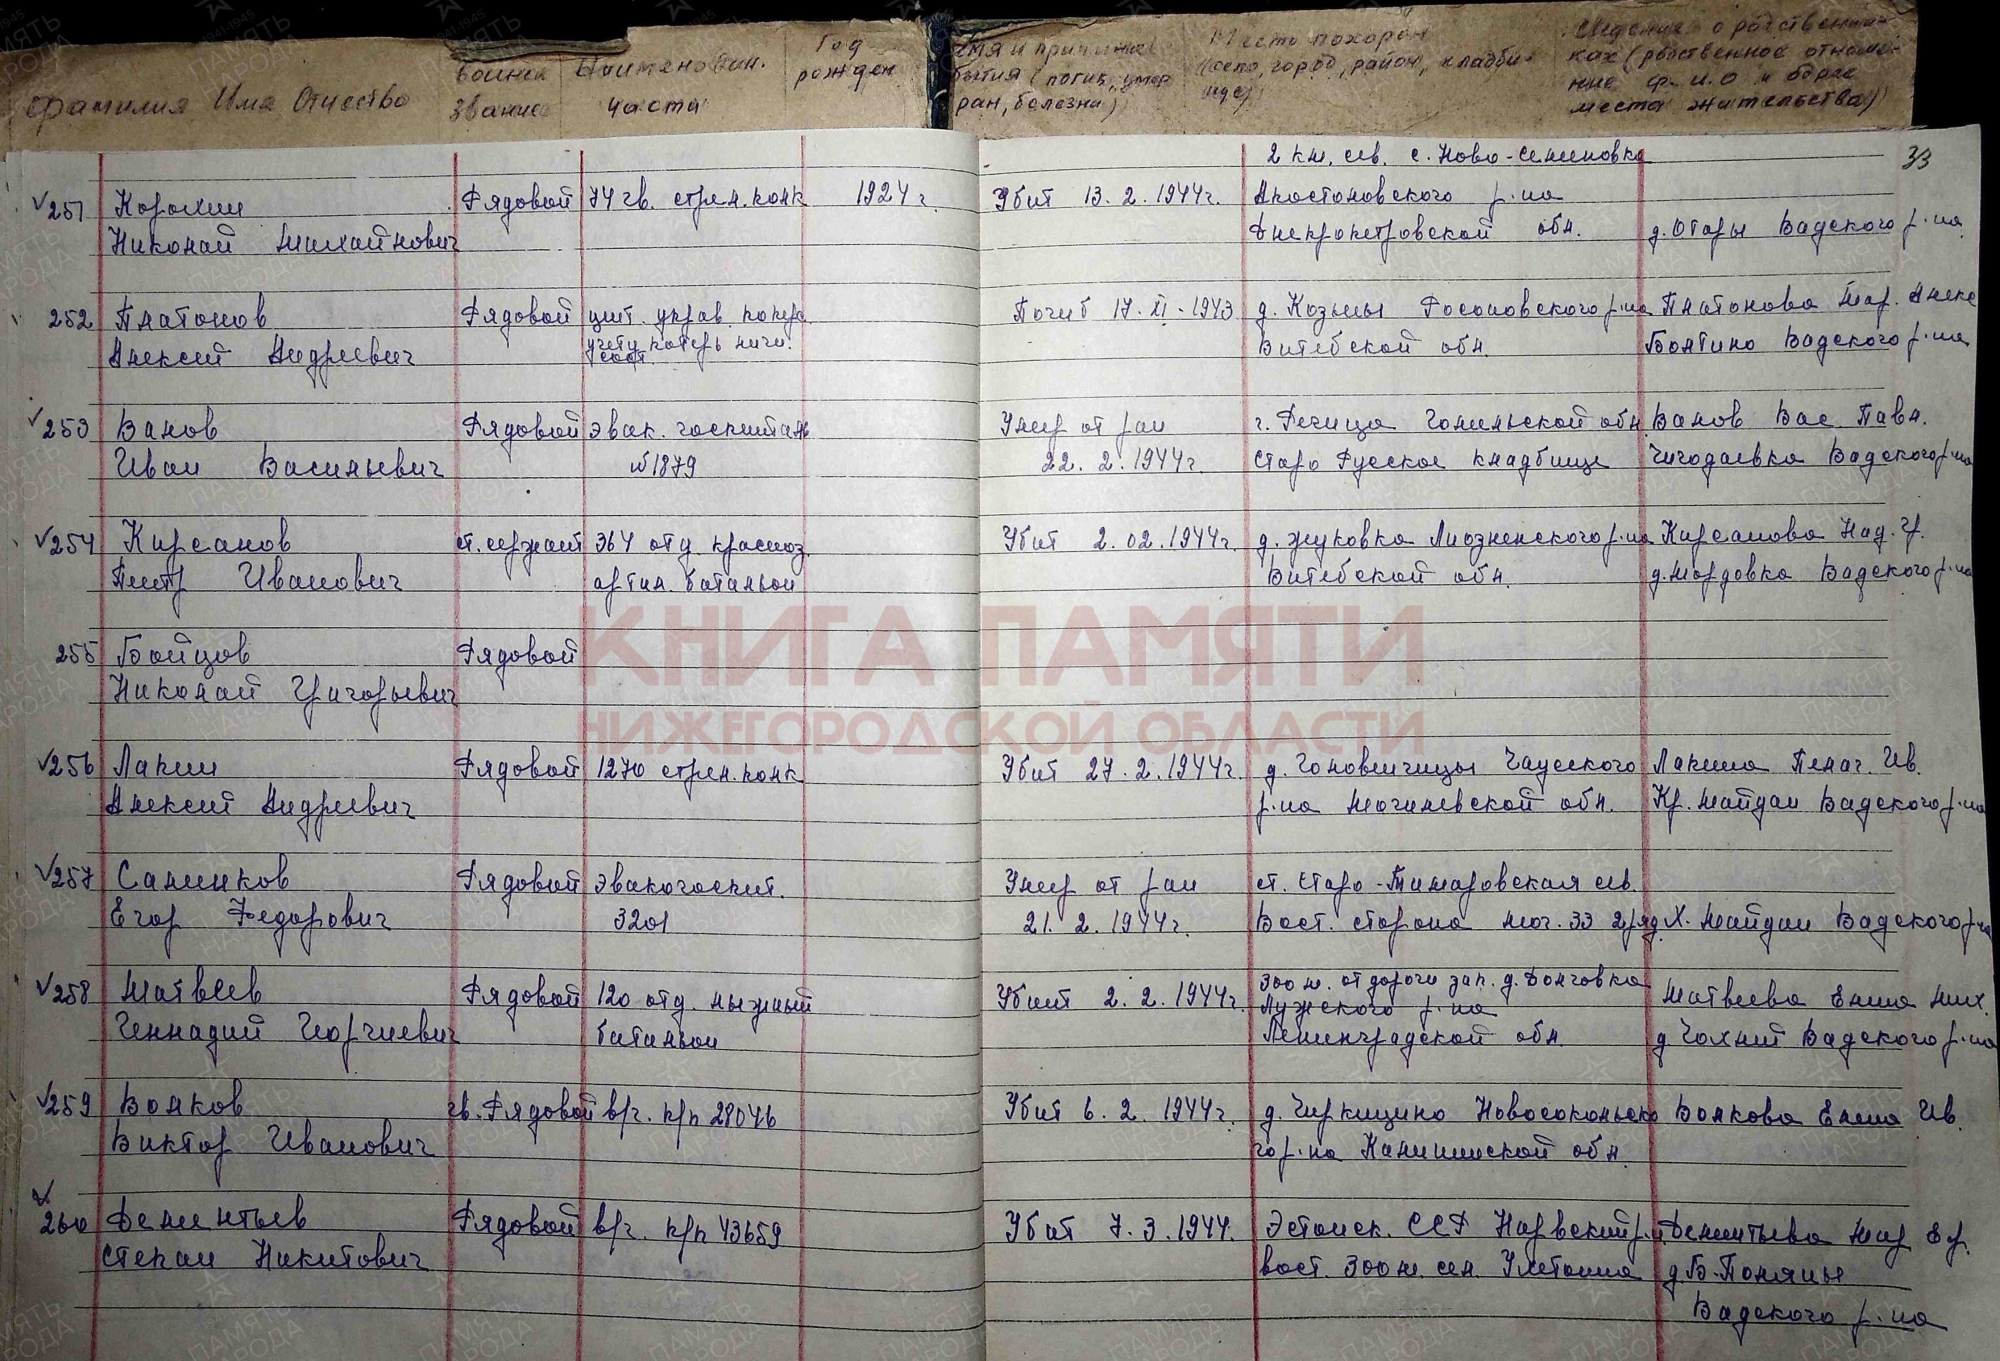 Фамилия Имя Отчество
Воинск
звание
Наименован.
части
Год
рожден
и причина
бытия (погиб, умер
ран, болезни)
Место похорон
город, район, кладби-
ище)
Сведения о родственни-
ках (родственное отноше-
ние ф.и.о и адрес
места жительства)
33
251 Корохин Рядовой 74 гв. стрел. полк 1924 г. Убит 13.2.1944г. 2 км. сев. с. Ново-Семеновка
Апостоловского р-на
Николай Михайлович Днепропетровской обл. д. Отары Вадского р-на
252 Платонов Рядовой цент. управ. учету потерь личн. сост. Погиб 17.XI.1943 д. Козьмы Росоновского р-на Платонова Мар. Алекс
Алексей Андреевич Витебской обл. Болтино Вадского р-на
253 Ванов Рядовой эвак. госпиталь Умер от ран г. Речица Гомельской обл. Ванов Вас. Павл.
Иван Васильевич №1879 22.2.1944г. Старо Русское кладбище Чигодаевка Вадского р-на
254 Кирсанов ст. сержант 364 отд. красноз. Убит 2.02.1944г. д. Жуковка Лиозненского р-на Кирсанова Над. Гр.
Петр Иванович артил. батальон Витебской обл. д. Мордовка Вадского р-на
255 Бойцов Рядовой
Николай Григорьевич
256 Лакин Рядовой 1270 стрел. полк Убит 27.2.1944г. д. Головенчицы Чаусского Лакина Пелаг. Ив.
Алексей Андреевич р-на Могилевской обл. Кр. Майдан Вадского р-на
257 Саленков Рядовой эвакогоспит. Умер от ран ст. Старо-Тимаровская сев.
Егор Федорович 3201 21.2.1944г. Вост. сторона мог. 33 2 ряд Х. Майдан Вадского р-на
258 Матвеев Рядовой 120 отд. лыжный Убит 2.2.1944г. 300 м. от дороги зап. д. Долговка Матвеева Елена Мих.
Лужского р-на
Геннадий Георгиевич батальон Ленинградской обл. д Чохлей Вадского р-на
259 Волков гв. Рядовой в/ч. п/п 28046 Убит 6.2.1944г. д. Чиркицино Новосокольско Волкова Елена Ив.
Виктор Иванович го р-на Калининской обл.
260 Дементьев Рядовой в/ч. п/п 43659 Убит 7.3.1944. Эстонск. ССР Нарвский р-н Дементьева Мар Еф.
Степан Никитович вост. 300 м. сел. Уметонна д. Б. Поляны
Вадского р-на
КНИГА ПАМЯТИ
НИЖЕГОРОДСКОЙ ОБЛАСТИ